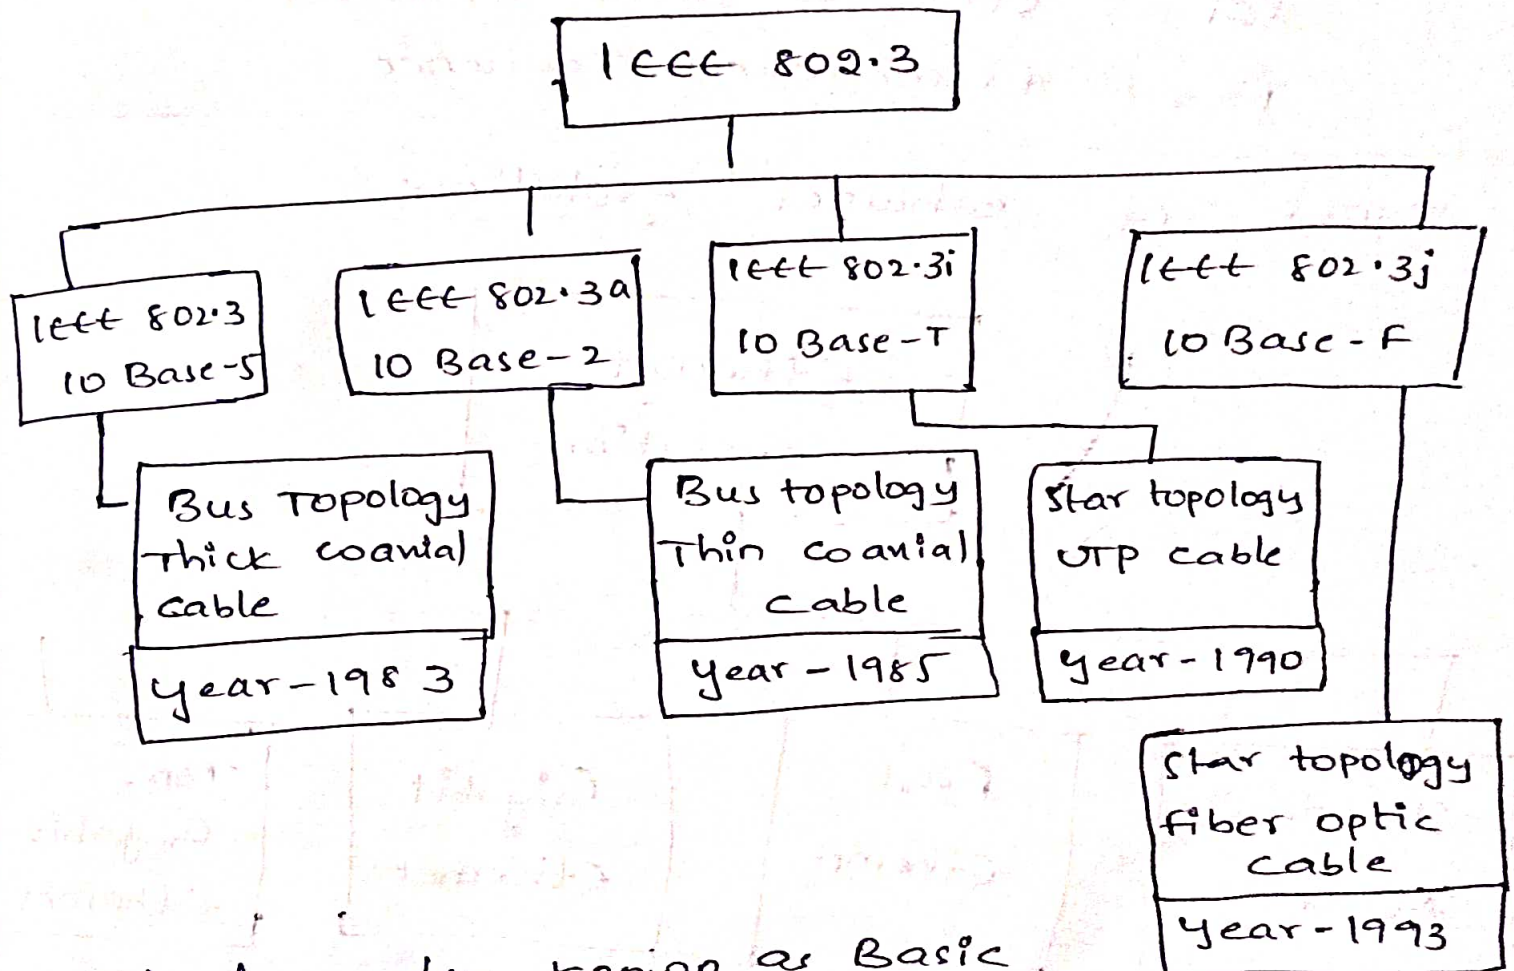 IEEE 802.3
IEEE 802.3
10 Base-5
IEEE 802.3a
10 Base-2
IEEE 802.3i
10 Base-T
IEEE 802.3j
10 Base-F
Bus Topology
Thick coaxial
cable
year-1983
Bus topology
Thin coaxial
cable
year-1985
Star topology
UTP cable
year-1990
Star topology
fiber optic
cable
year-1993
as Basic